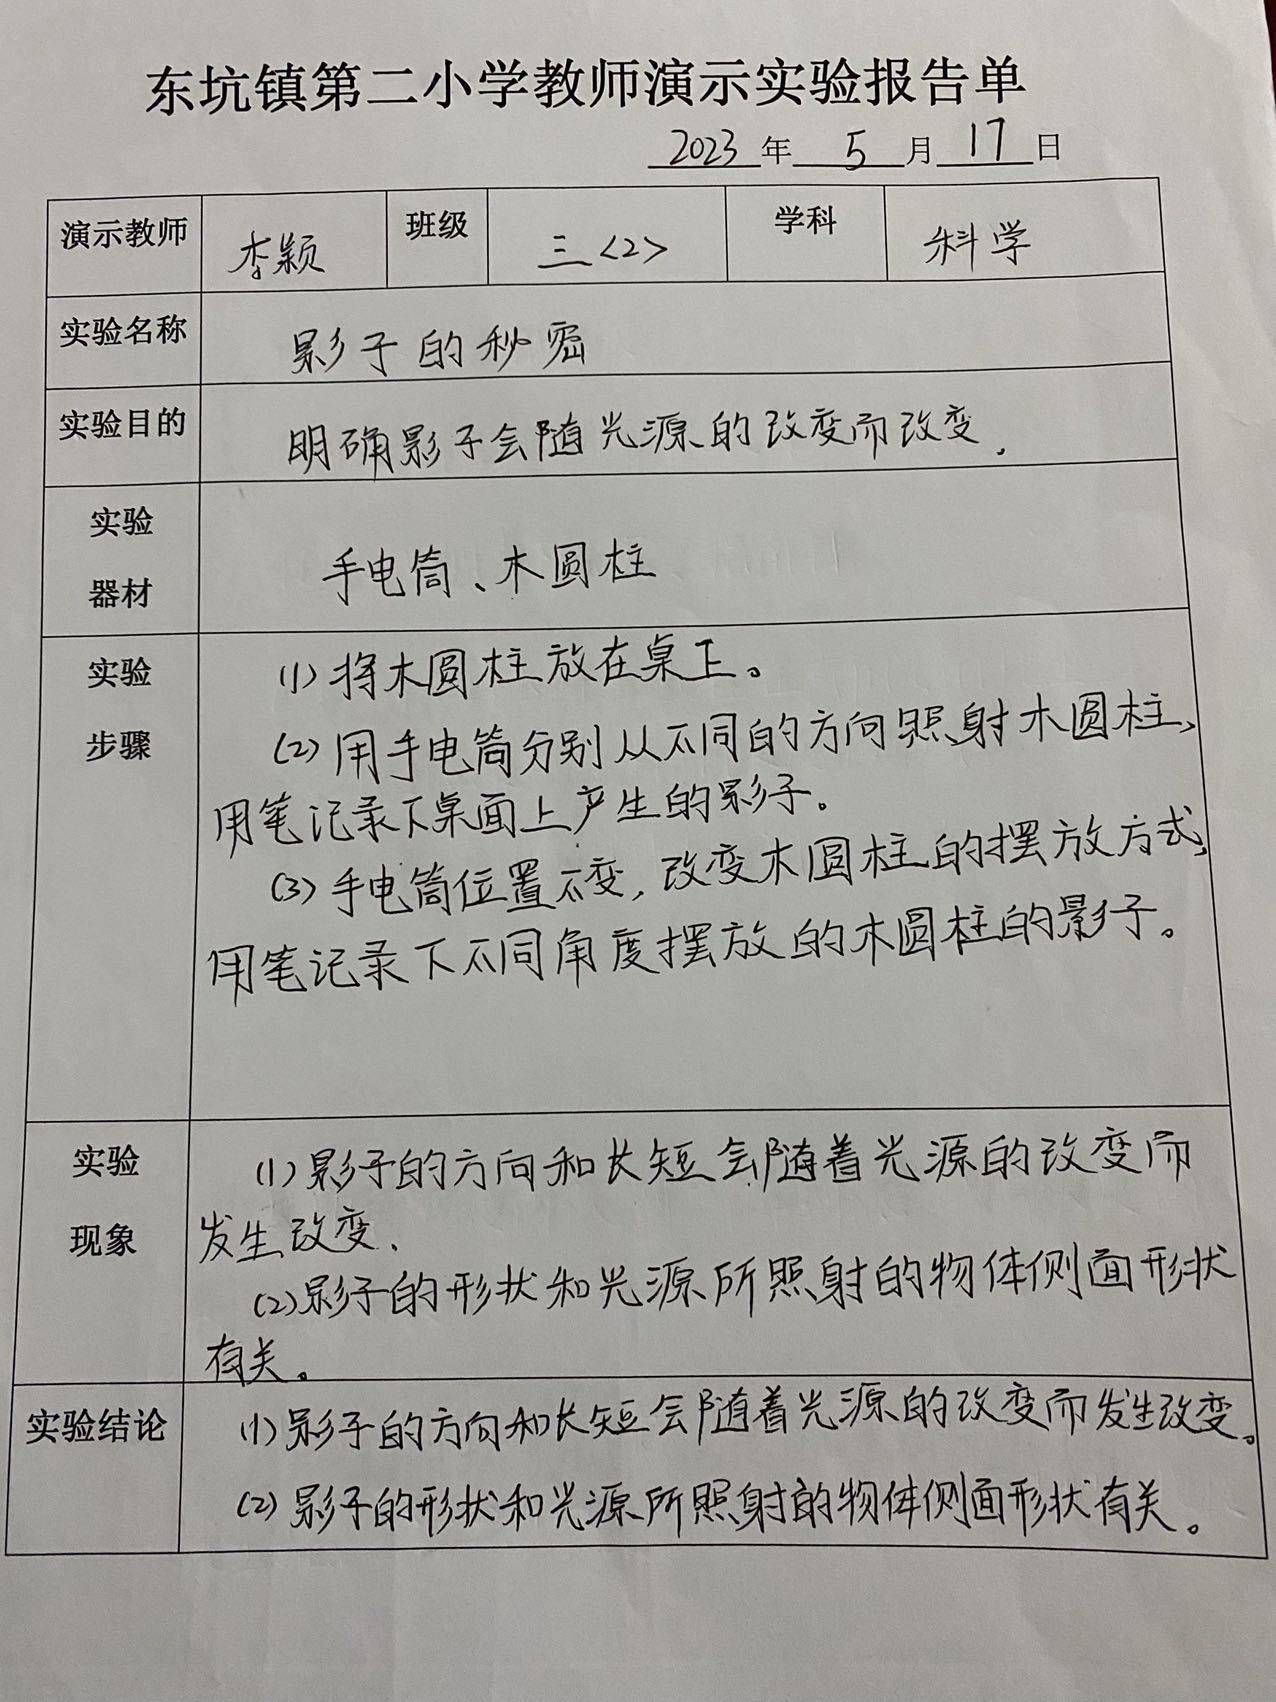 东坑镇第二小学教师演示实验报告单
2023年5月17日
演示教师 李颖 班级 三<2> 学科 科学
实验名称 影子的秘密
实验目的 明确影子会随光源的改变而改变.
实验
器材
手电筒、木圆柱
实验
步骤
(1) 将木圆柱放在桌上。
(2) 用手电筒分别从不同的方向照射木圆柱,
用笔记录下桌面上产生的影子。
(3) 手电筒位置不变,改变木圆柱的摆放方式,
用笔记录下不同角度摆放的木圆柱的影子。
实验
现象
(1) 影子的方向和长短会随着光源的改变而
发生改变.
(2) 影子的形状和光源所照射的物体侧面形状
有关。
实验结论
(1) 影子的方向和长短会随着光源的改变而发生改变。
(2) 影子的形状和光源所照射的物体侧面形状有关。